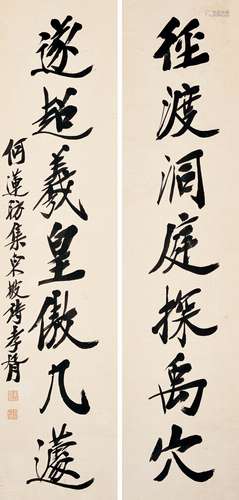 径渡洞庭探禹穴
遂超羲皇傲几蘧
何蓮舫集東坡詩孝胥